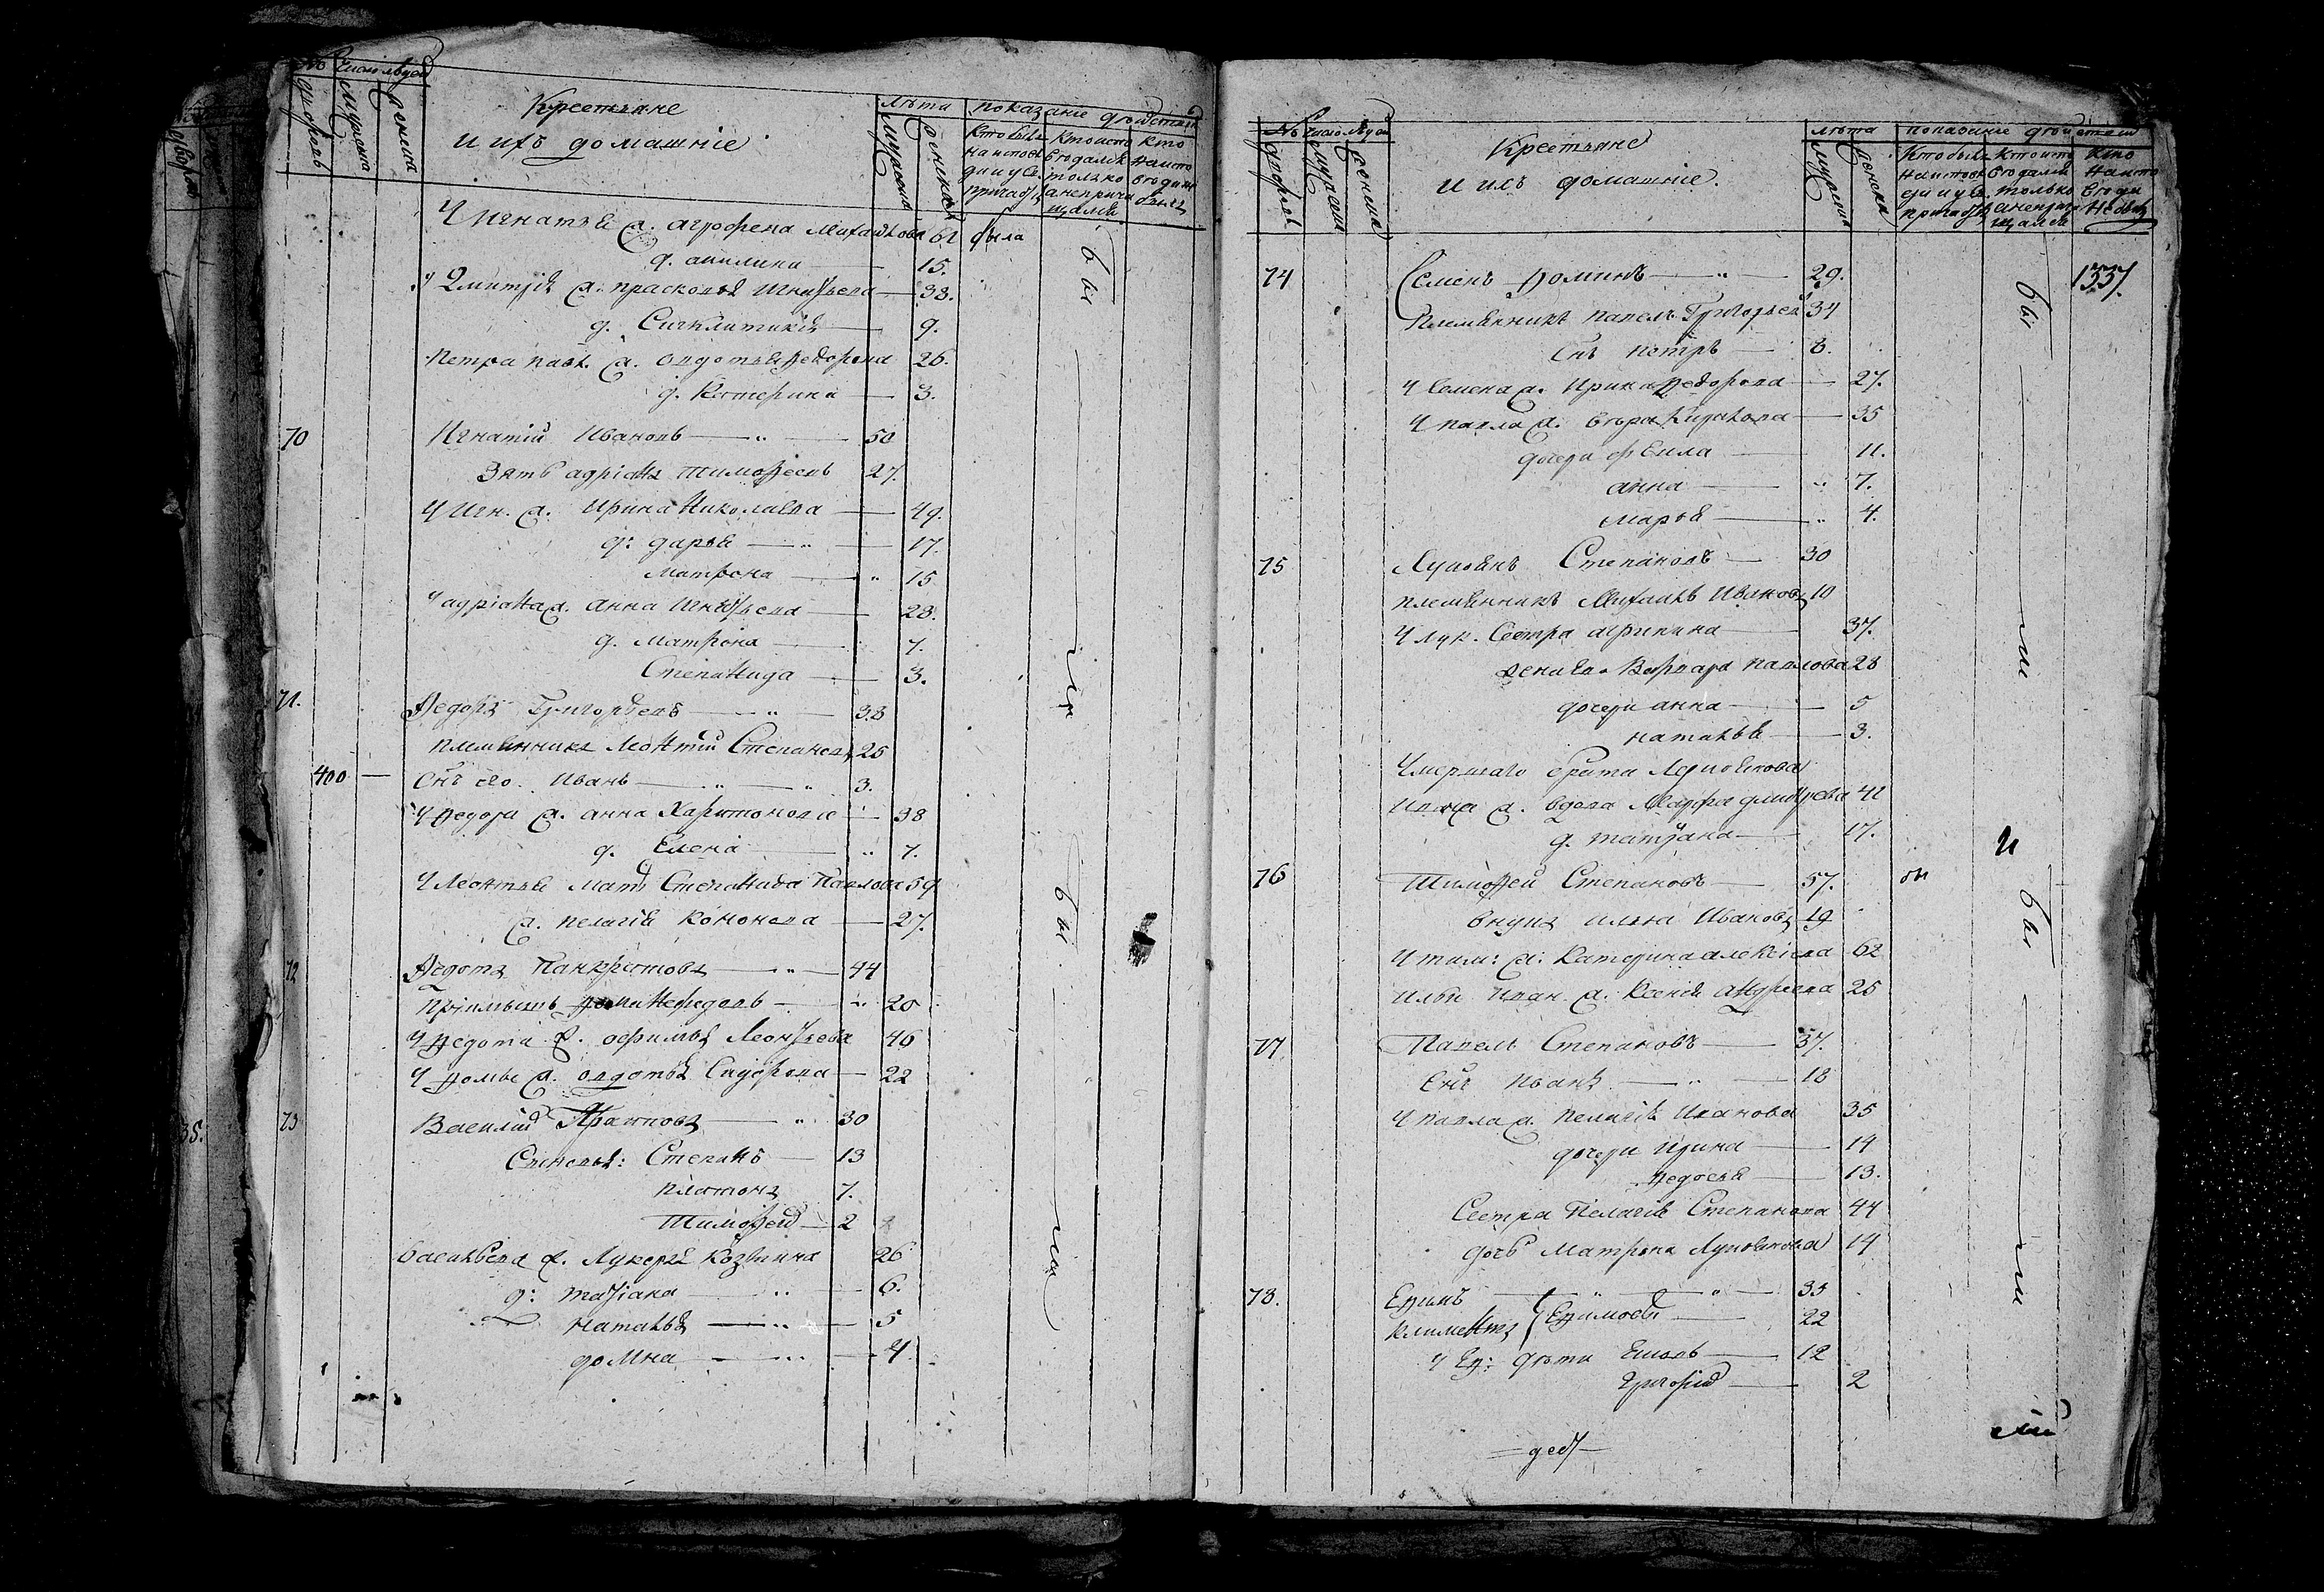 № Число людей
дворовъ
мужеска
женска
Крестьяне
и ихъ домашніе
лѣта
мужеска
женска
показаніе дѣйств
Кто былъ на исповѣди и у св. причаст.
Кто исповѣдался только а не причащался
Кто на исповѣди не былъ
У Игнатья ж. агрофена Михайлова 61 была
д. акилина 15.
У Дмитрія ж. прасковья Игнатьева 38.
д. Сигклитикія 9.
Петра павл. ж. овдотья Ѳедорова 26.
д. Катерина 3.
70 Игнатій Ивановъ 50
Зять адріанъ Тимоѳеевъ 27.
У Игн. ж. Ирина Николаева 49.
д: дарья 17.
Матрона 15
У адріана ж. анна Игнатьева 28.
д. Матрона 7.
Степанида 3.
71. Ѳедоръ Григорьевъ 38
племянникъ Леонтій Степановъ 25
400 Снъ его Иванъ 3.
У Ѳедора ж. анна Харитонова 38
д. Елена 7.
У Леонтья Мать Степанида Павлова 59
ж. пелагія Кононова 27.
72 Ѳедотъ Панкратовъ 44
Пріимышъ Ѳома Нефедовъ 20
У Ѳедота ж. офимья Леонтьева 46
У Ѳомы ж. овдотья Сидорова 22
73 Василій 30
Сыновья: Степанъ 13
платонъ 7.
Тимоѳей 2
Васильева ж. Лукерья Козмина 26
д: татіана 6.
Наталья 5
домна 4
бы
ли
бы
ли
35.
№ Число людей
дворовъ
мужеска
женска
Крестьяне
и ихъ домашніе.
лѣта
мужеска
женска
показаніе дѣйствія
Кто былъ на исповѣди и у св. причаст.
Кто исповѣдался только а не причащался
Кто на исповѣди не былъ
1337.
74 Семенъ Ѳоминъ 29.
Племянникъ павелъ Григорьевъ 34
Снъ петръ 8.
У Семена ж. Ирина Ѳедорова 27.
У павла ж. 35
дочери 11.
анна 7.
марья 4.
75 Лукоянъ Степановъ 30
племянникъ Михаилъ Ивановъ 10
У Лук. Сестра агрипина 37.
жена Варвара павлова 28
дочери анна 5
наталья 3.
Умершаго брата Лукоянова
Ивана ж. вдова Марфа дмитрева 42
д. татіана 17.
76 Тимоѳей Степановъ 57.
внукъ илья Ивановъ 19
У тим: ж: катерина алексіева 62
Ильи Иван. ж. Ксенія Андреева 25
77 Павелъ Степановъ 37.
Снъ Иванъ 18
У павла ж. пелагія Иванова 35
дочери Ирина 14
Ѳедосья 13.
Сестра Пелагія Степанова 44
дочь Матрона Лукоянова 14
78. Ефимъ 33
Климентъ Ефимовы 22
У Еф: дѣти 12
Григорій 2
бы
ли
бы
ли